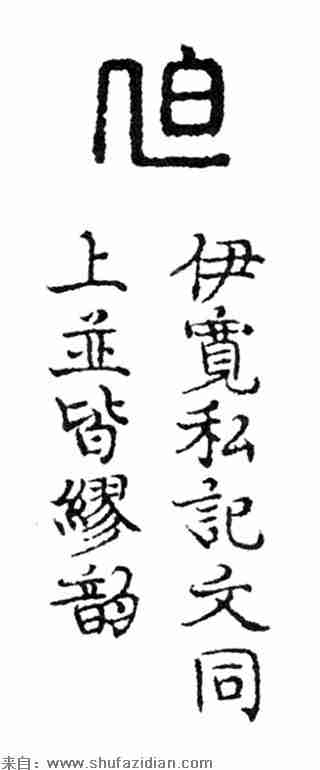 伊寬私記文同
上並皆繆韻
来自：www.shufazidian.com